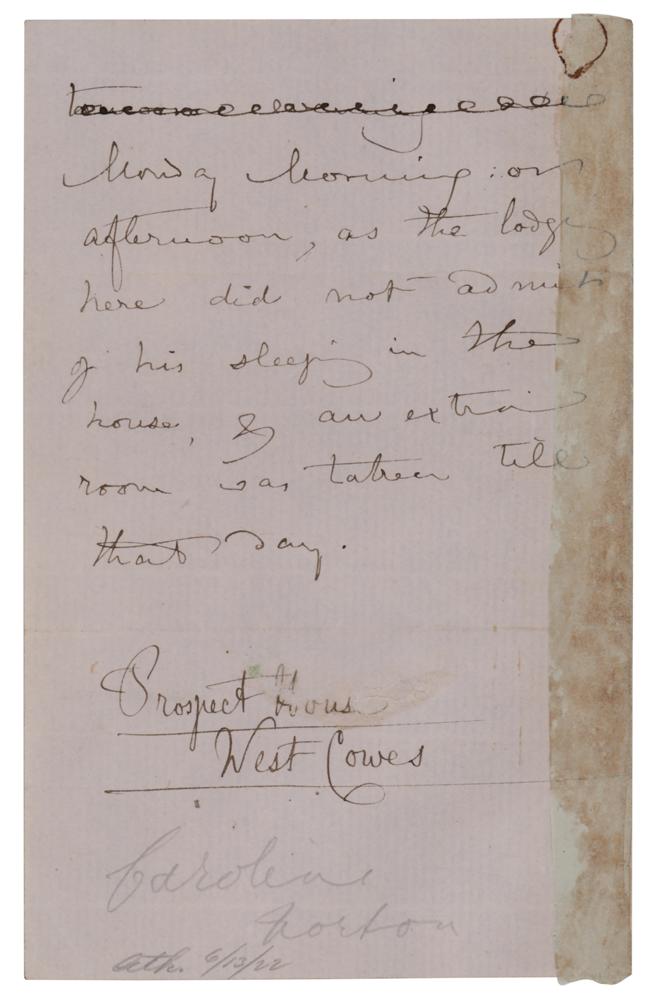 Monday Morning: or
afternoon, as the lodge
here did not admit
of his sleeping in the
house, & an extra
room was taken till
that day.
Prospect House
West Cowes
Caroline
Norton
Ath. 6/13/22